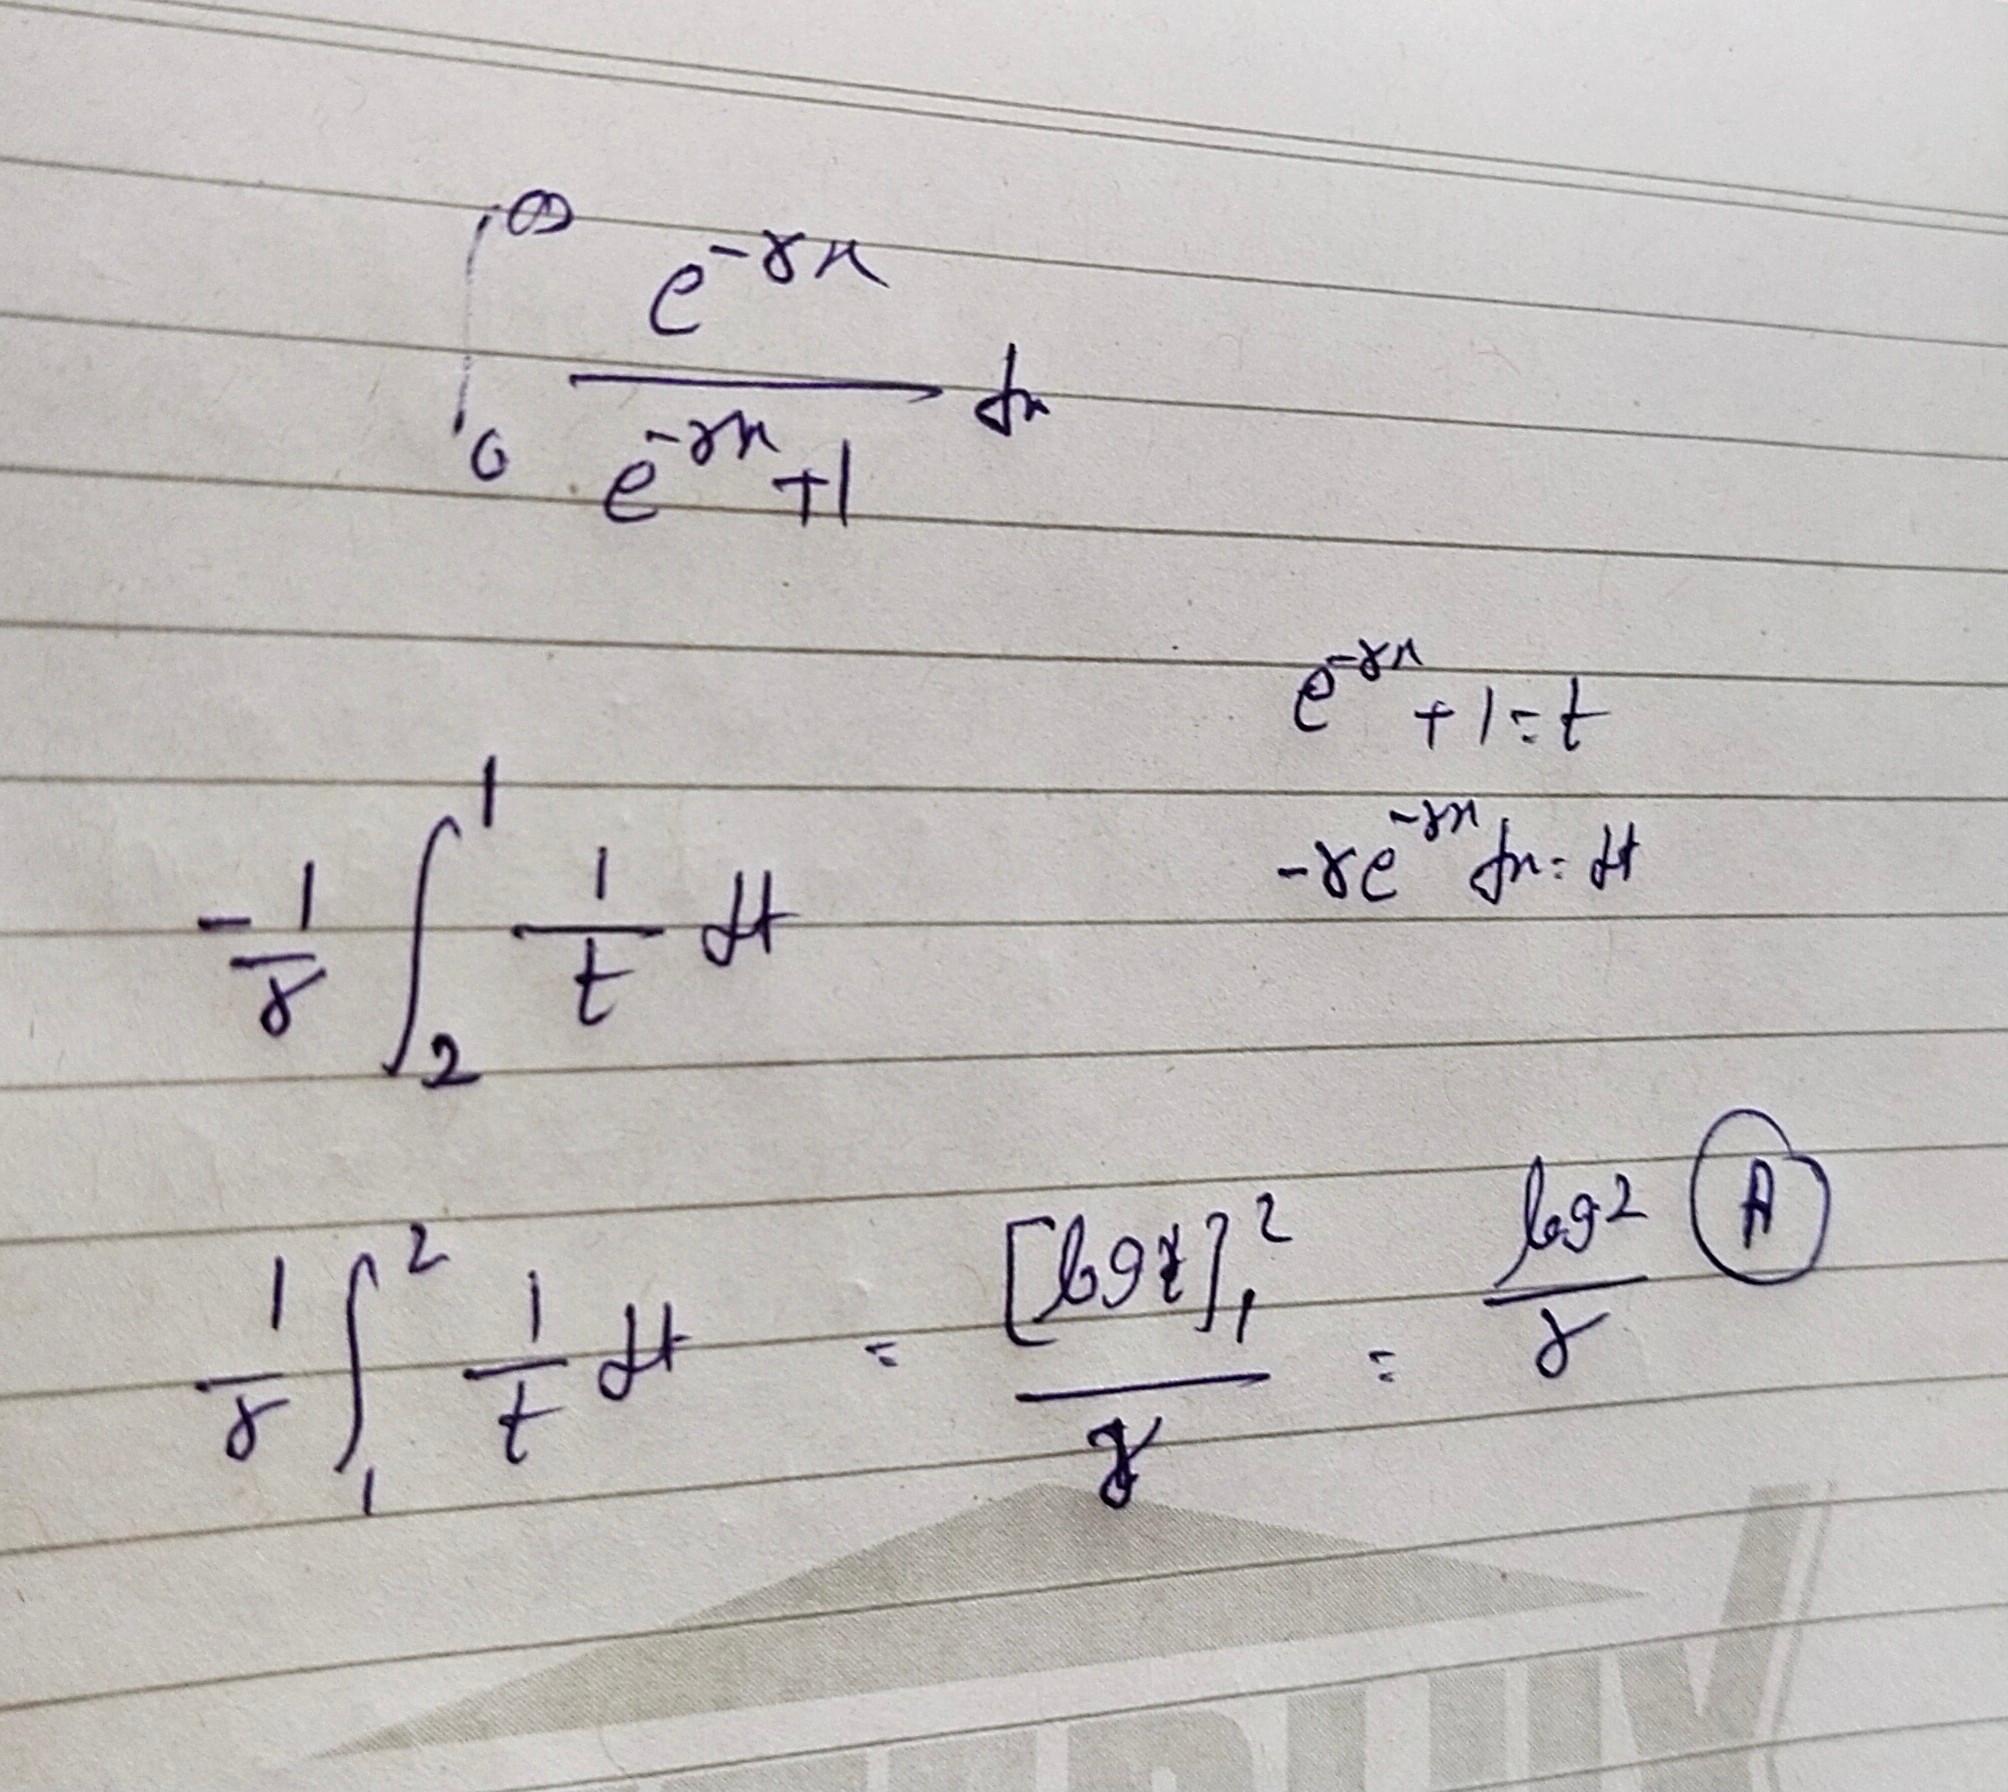 ∫₀^∞ e^{-γx} / (e^{-γx} + 1) dx
e^{-γx} + 1 = t
-γe^{-γx} dx = dt
-1/γ ∫₂¹ 1/t dt
1/γ ∫₁² 1/t dt = [log t]₁² / γ = log 2 / γ (A)